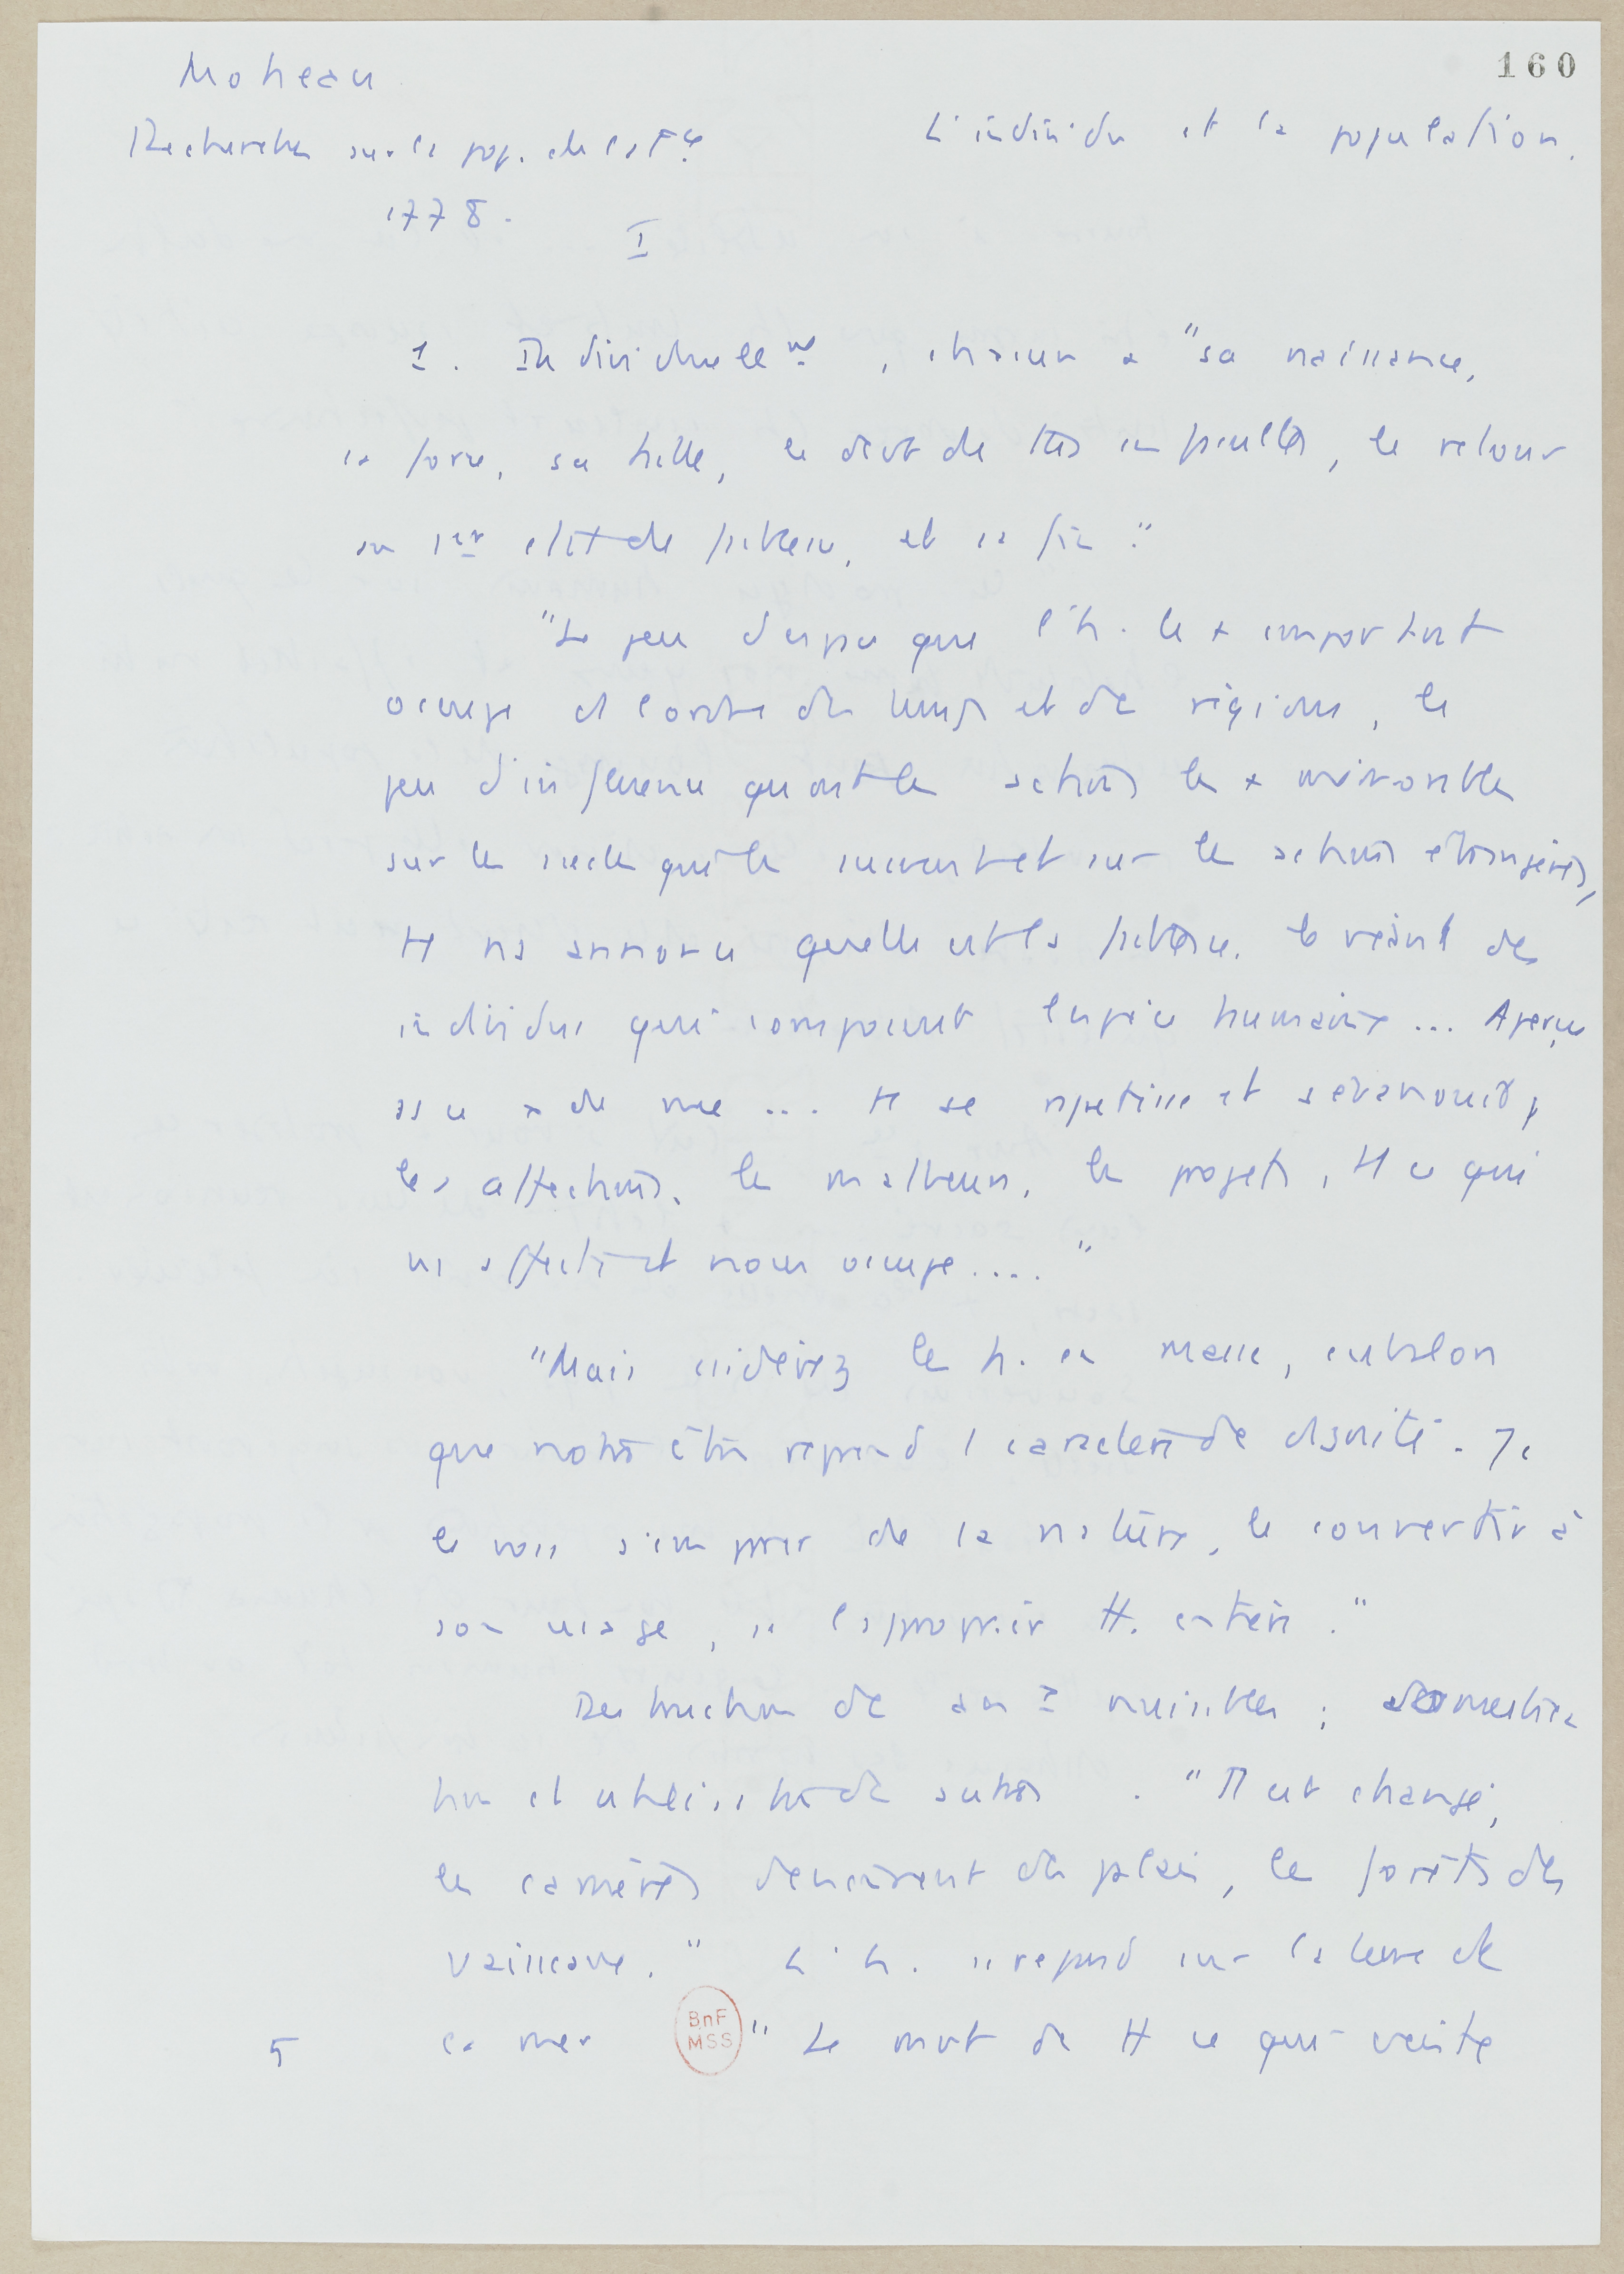 160
Moheau
Recherches sur la pop. de la Fce
L'individu et la population.
1778.
I
1. Individuellemt, chacun a "sa naissance,
sa force, sa taille, le droit de ses facultés, le retour
au 1er état de faiblesse, et sa fin."
"Le peu d'espace que l'h. le + important
occupe ds l'ordre des temps et des régions, le
peu d'influence qu'ont les actions les + mémorables
sur les siècles qui les suivent et sur les actions étrangères,
tt ns annonce quelle est la faiblesse, le néant des
individus qui composent l'espèce humaine... Aperçue
de vue ... tt se rapetisse et s'évanouit,
les affections, les malheurs, les projets, tt ce qui
ns affecte et nous occupe...."
"Mais considérez les h. en masse, c'est alors
que notre être reprend 1 caractère de dignité. Je
le vois s'emparer de la nature, la convertir à
son usage, se l'approprier tt. entière."
Destruction des anx nuisibles ; domestica
tion et utilisation des autres. "Tt est changé,
les carrières deviennent des palais, les forêts des
vaisseaux." L'h. se répand sur la terre et
la mer "Le mot de tt ce qui existe
5
BnF
MSS